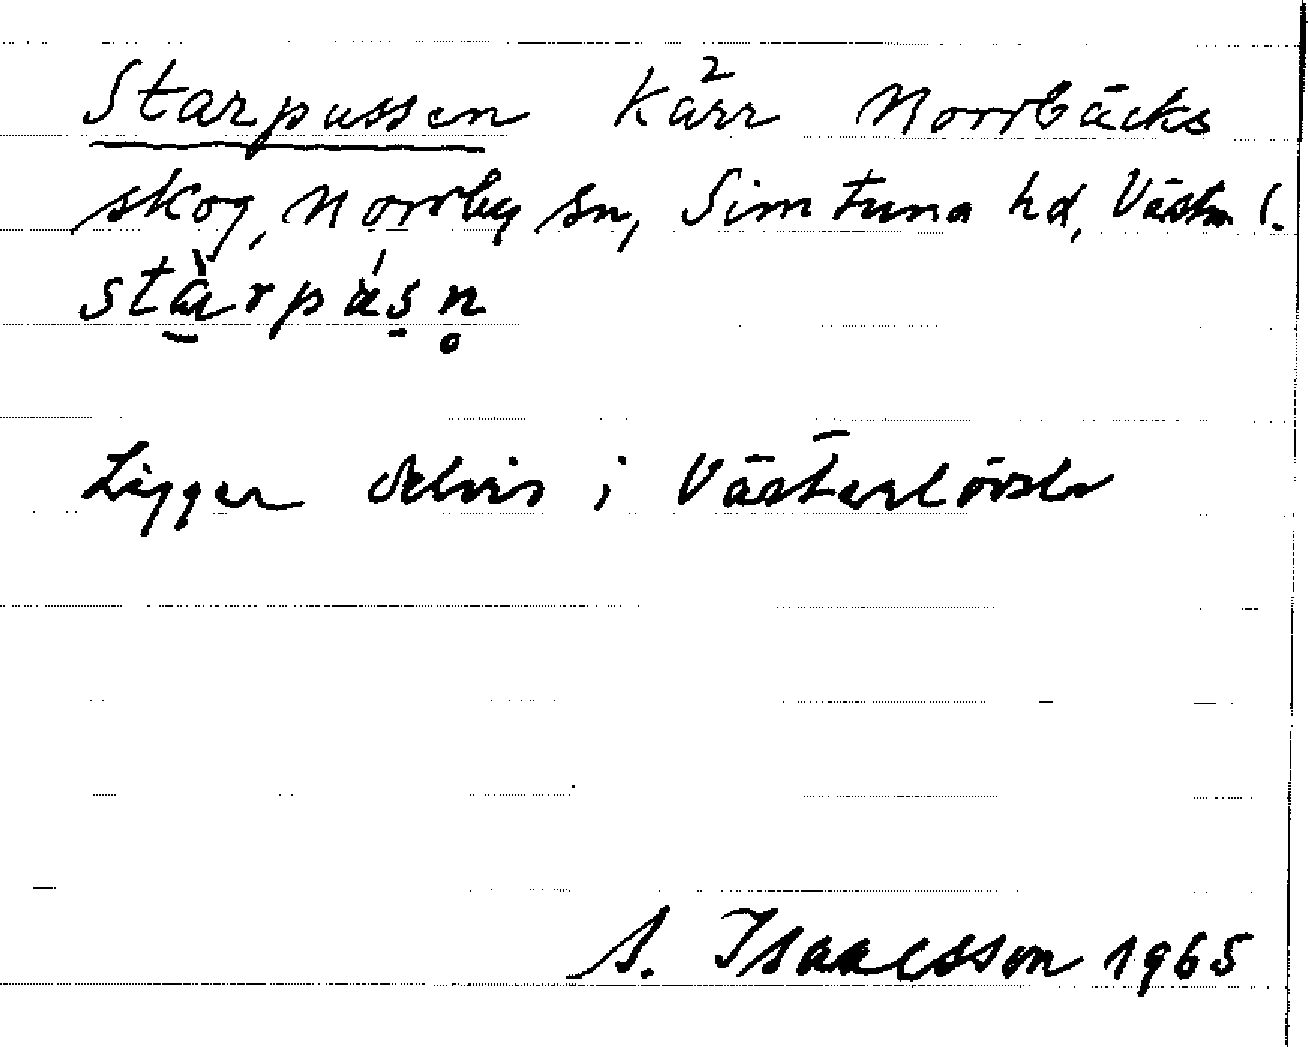 Starpussen Kärr Norrbäcks
skog, Norrby sn, Simtuna hd, Västm l.
stàrpúsn
Ligger delvis i Västerlövsta
A. Isaacsson 1965